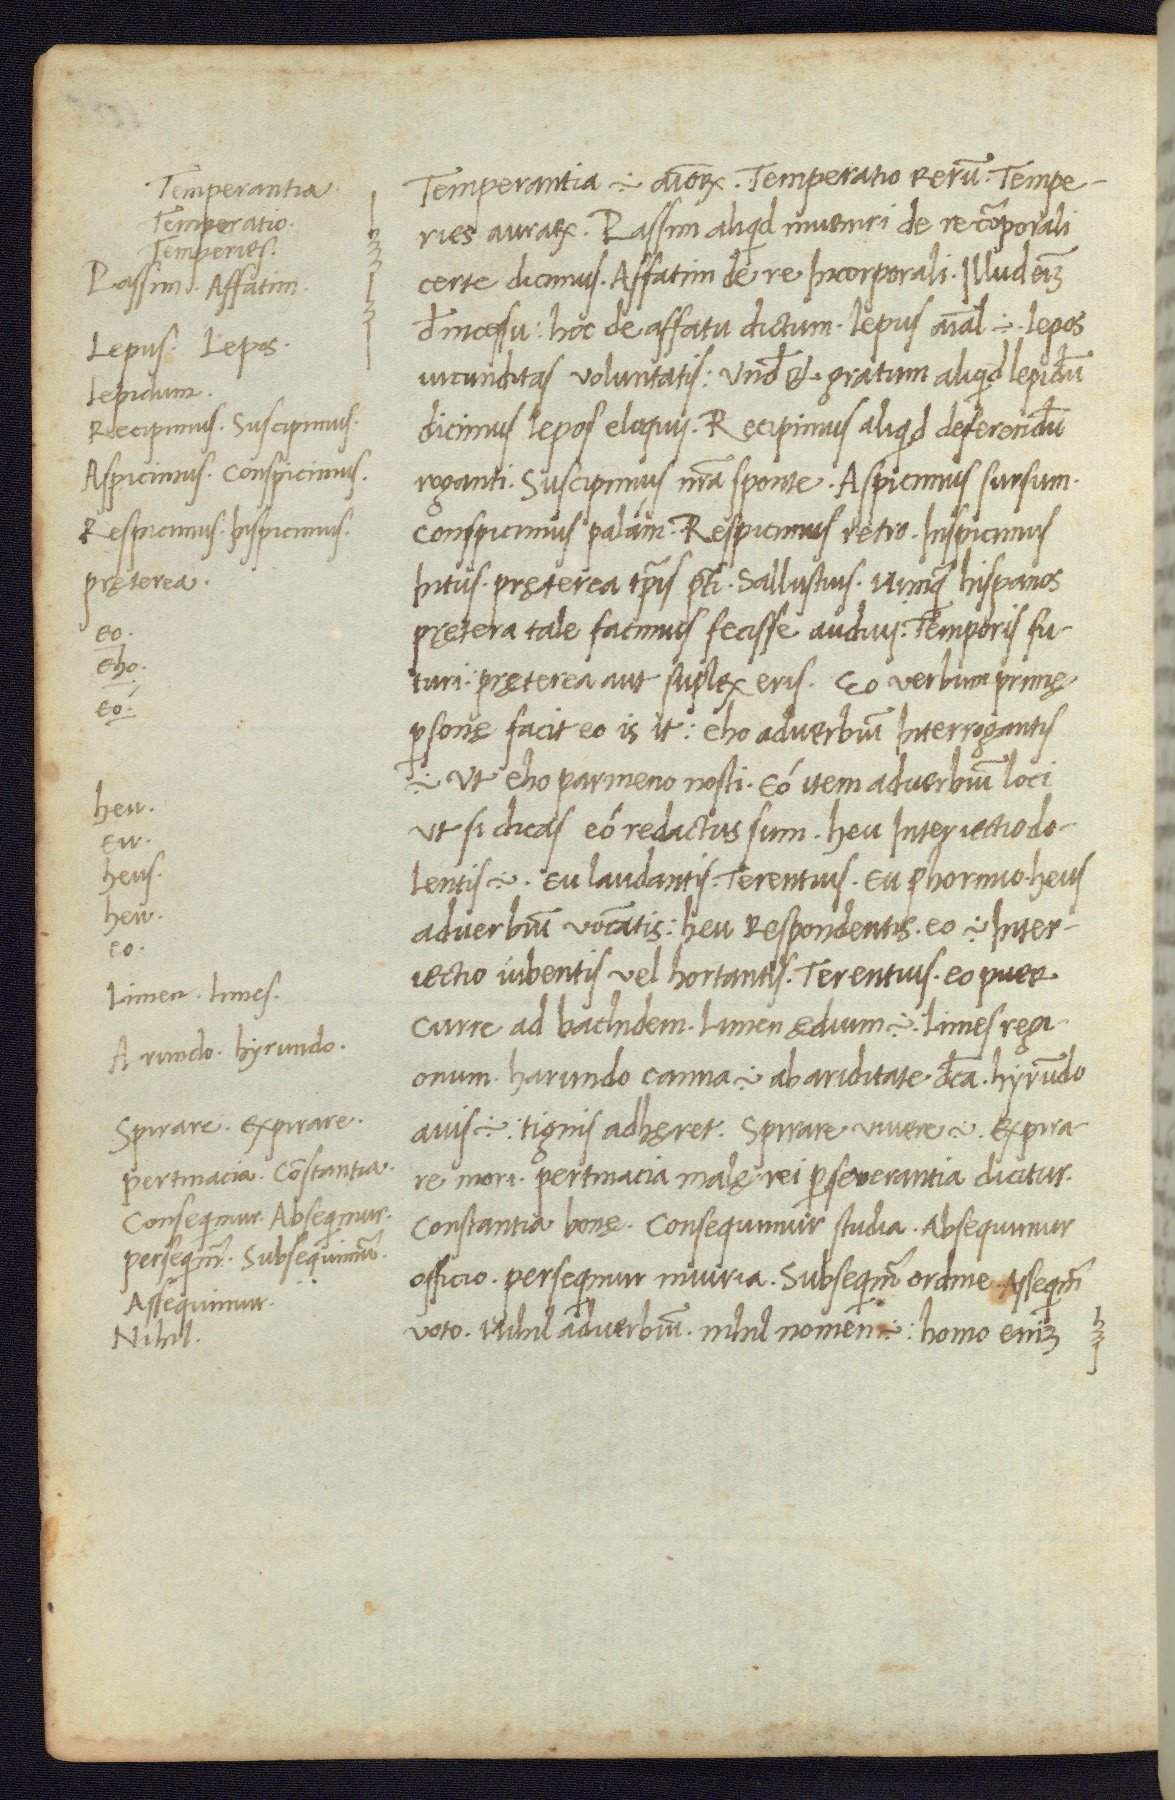 Temperantia.
Temperatio.
Temperies.
Passim. Affatim.
Lepus. Lepos.
Lepidum.
Recipimus. Suscipimus.
Aspicimus. Conspicimus.
Respicimus. Inspicimus.
pręterea.
eo.
Eho.
Eó.
heu.
Eu.
heus.
heu.
eo.
Limen. Limes.
Arundo. hyrundo.
Spirare. Expirare.
pertinacia. Cōstantia.
Conseqimur. Abseqimur.
perseqim̄. Subsequimur̄.
Assequimur.
Nihil.
Temperantia ÷ aīoꝝ. Temperatio Rerū. Tempe-
ries auraꝝ. Passim aliqd inueniri de re cōporali
certe dicimus. Affatim de re Incorporali. Illud eīꝫ
đ incessu: hoc de affatu dictum. lepus aīal ÷. lepos
iucunditas voluntatis: Vnđ & gratum aliqd lepidū
dicimus lepos eloquij. Recipimus aliqd deferendū
roganti. Suscipimus nr̄a sponte. Aspicimus sursum.
conspicimus palám. Respicimus retro. Inspicimus
Intus. pręterea tp̄is p̄ti. Sallustius. nūnq̄ hispanos
pręterea tale facinus fecisse audiui. Temporis fu-
turi. pręterea aut suplex eris. Eo verbum primę
ꝑsonę facit eo is it: eho aduerbiū Interrogantis
÷ Vt eho parmeno nosti. Eó item aduerbiū loci
vt si dicas eó redactus sum. heu Interiectio do-
lentis ÷. Eu laudantis. Terentius. Eu phormio. heus
aduerbiū vocātis: heu Respondentis. eo ÷ Inter-
iectio iubentis vel hortantis. Terentius. eo puer
curre ad bachidem. Limen ędium ÷. Limes regi-
onum. harundo canna ÷ ab ariditate dc̄a. hyrūdo
auis ÷: tignis adhęret. Spirare viuere ÷. Expira-
re mori. pertinacia malę rei ꝑseuerantia dicitur.
Constantia bonę. Consequimur studia. Absequimur
officio. perseqimur iniuria. Subseqim̄ ordine. Asseqim̄
voto. Nihil aduerbiū. nihil nomen ÷: homo eniꝫ